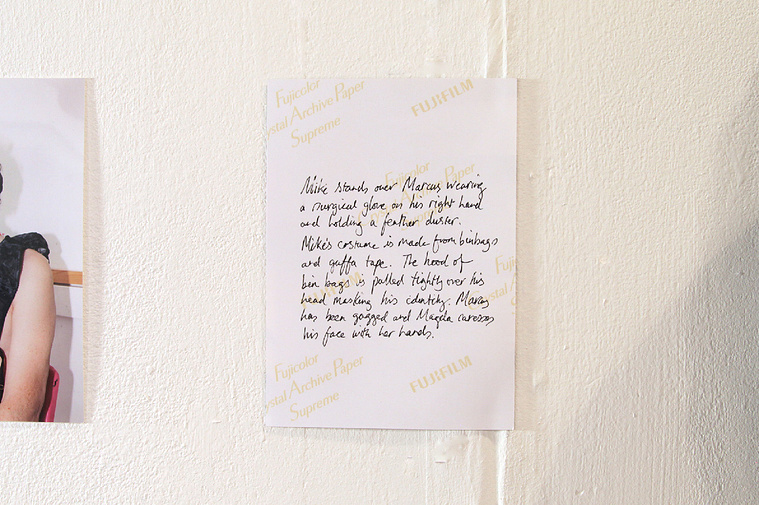 Fujicolor
Crystal Archive Paper
Supreme
FUJIFILM
Mike stands over Marcus wearing
a surgical glove on his right hand
and holding a feather duster.
Mike's costume is made from binbags
and gaffa tape. The hood of
bin bags is pulled tightly over his
head masking his identity. Marcus
has been gagged and Magda caresses
his face with her hands.
Fujicolor
ystal Archive Paper
Supreme
FUJIFILM